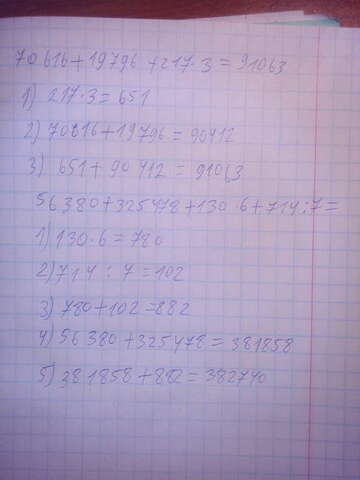 70616+19796+217·3=91063
1) 217·3=651
2) 70616+19796=90412
3) 651+90412=91063
56380+325478+130·6+714:7=
1) 130·6=780
2) 714:7=102
3) 780+102=882
4) 56380+325478=381858
5) 381858+882=382740